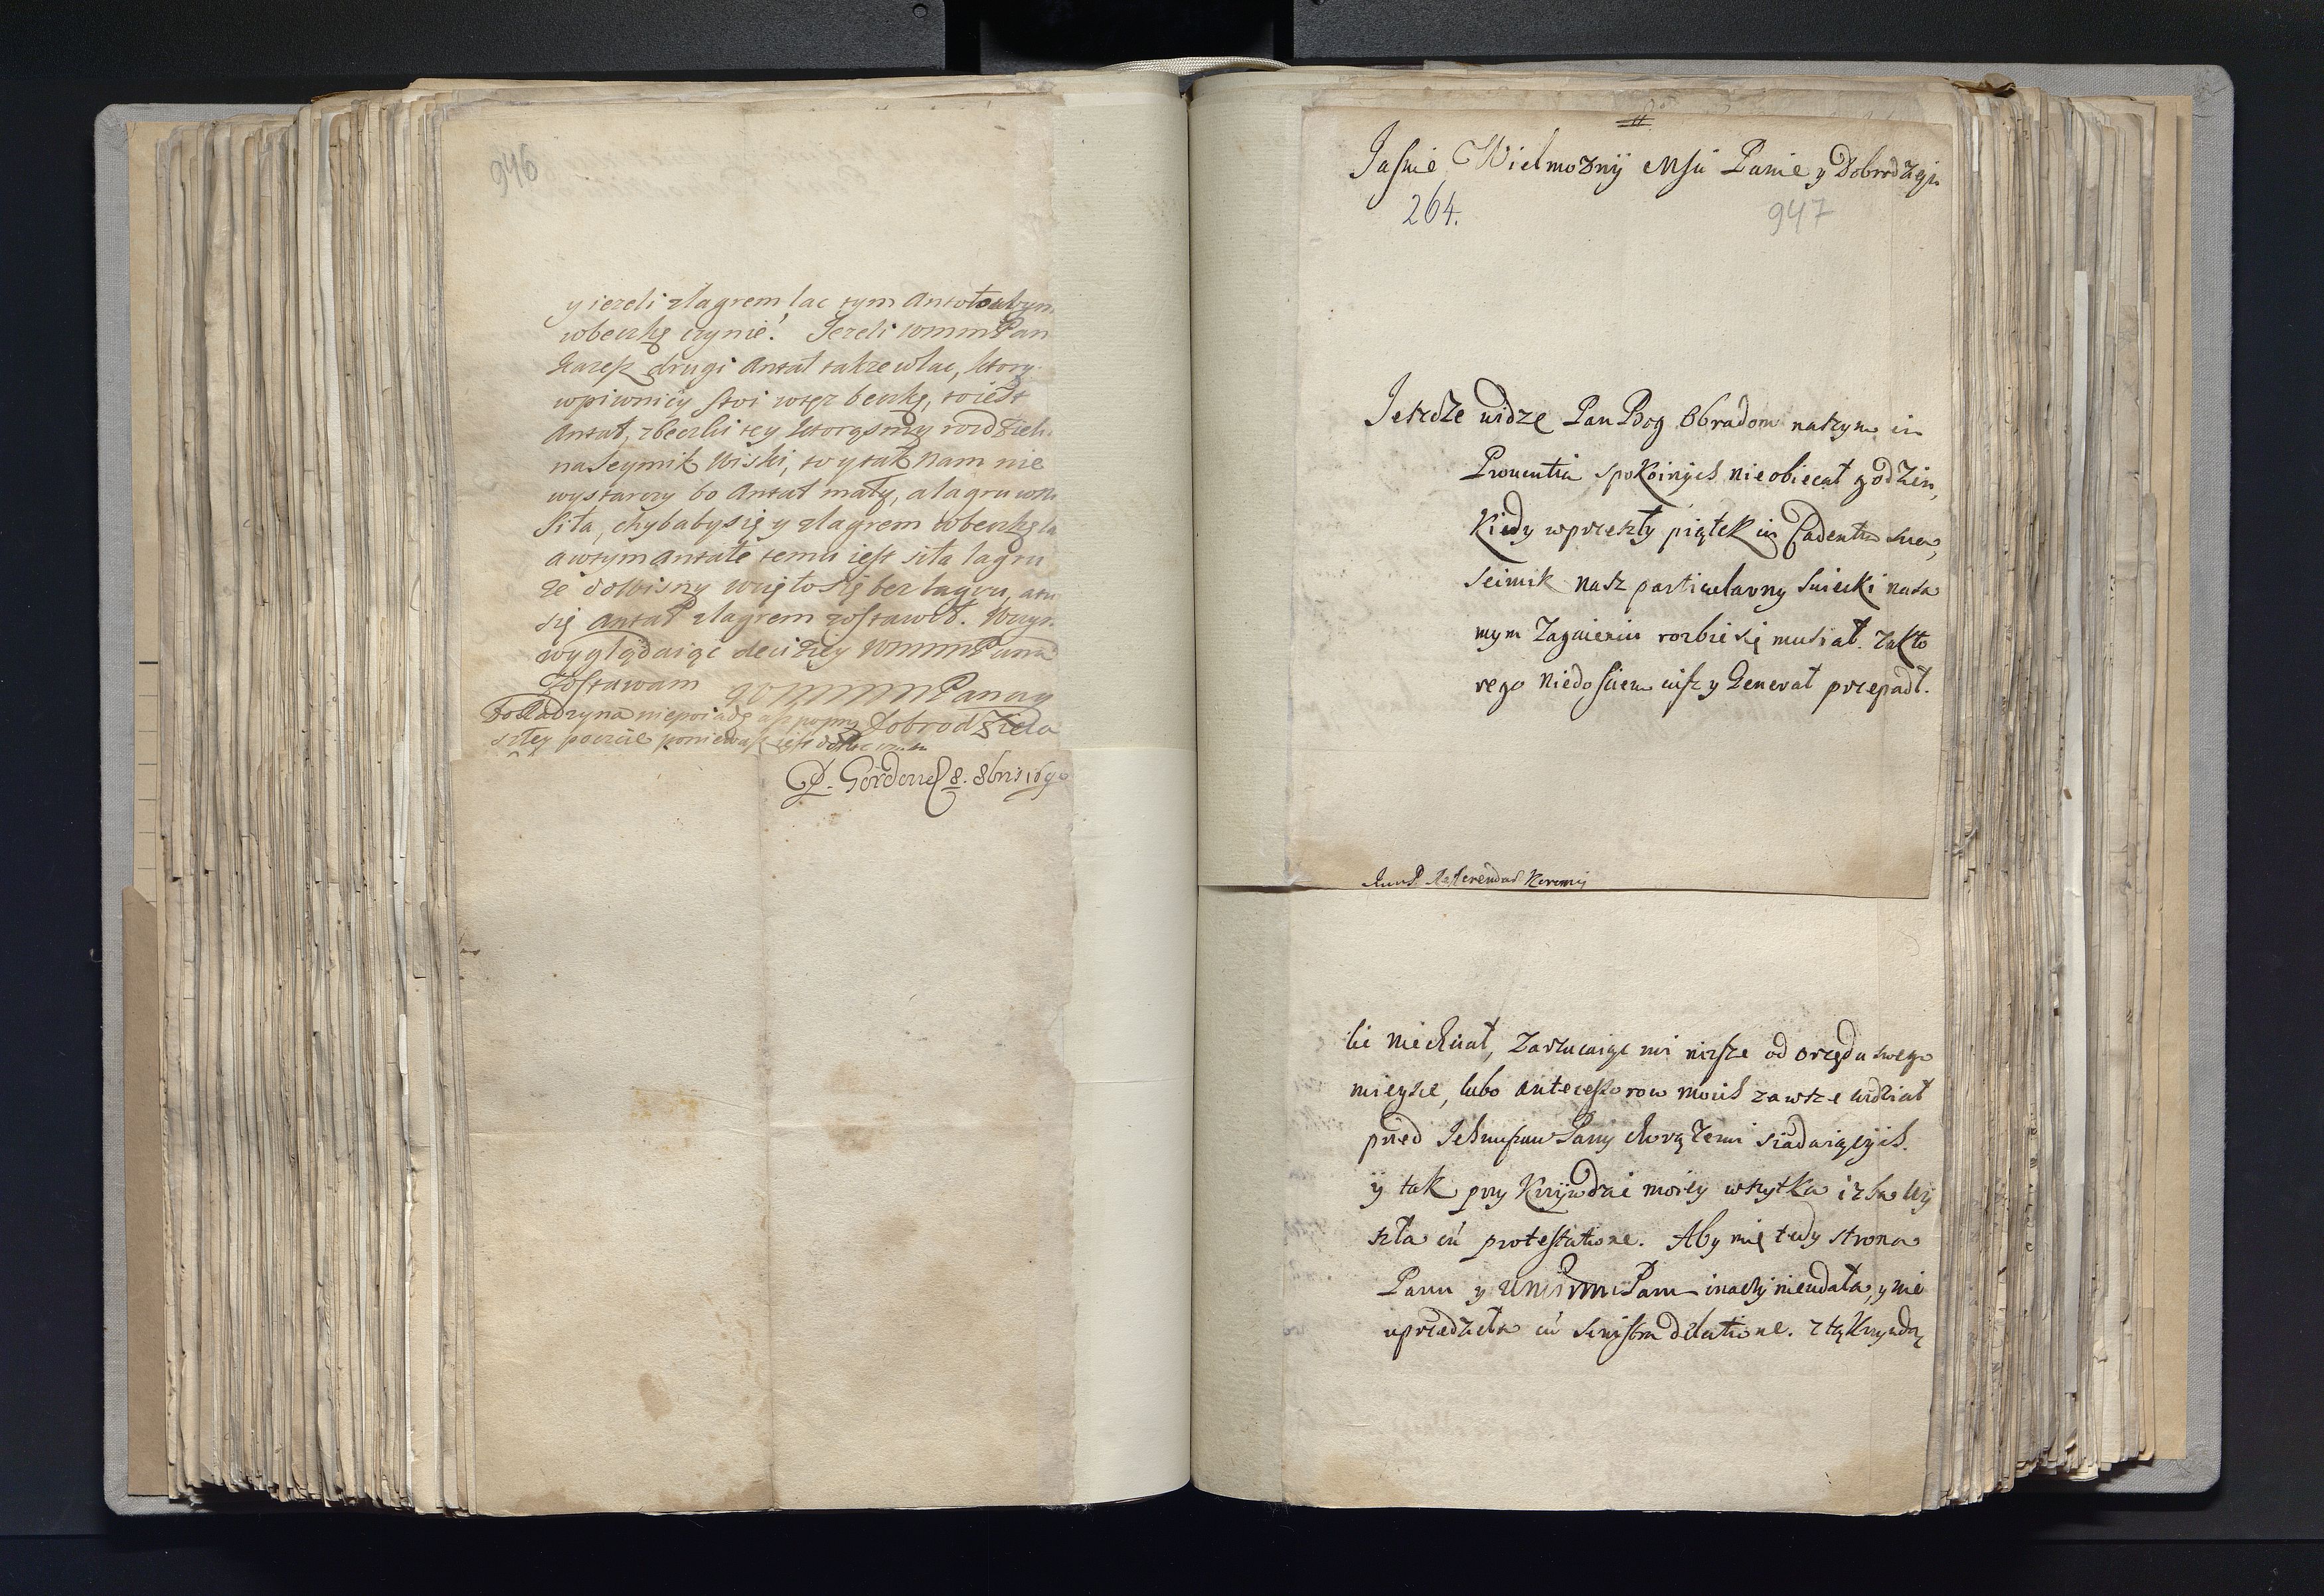 946
y iezeli zlagrem lac tym
wbeczkę czynie! Iezeli WMM Pan
każesz drugi Antał takze wlac, ktory
wpiwnicy stoi wtęz beczkę, toiest
Antał, zbeczki tey ktorąsmy
naSeymik Wiski, to y tak nam nie
wystarczy bo Antał mały, alagru
siła, chybabysię y zlagrem wbeczkę
awtymantale temu iest siła lagru
że wziętosię bez lagru,
się antał zlagrem zostawił.
wyglądaiąc deciziey WMMMPana
Zostawam
WMMM Pana y
Dobrodzieia
poniewasz iest
P. Gordon 8. 8bris 1690
Jasnie Wielmozny Msci Panie y Dobrodzeju
264.
947
Ieszcze widze Pan Bog Obradom naszym in
Prouentia spokoinych nieobiecał godzin,
Kiedy wprzeszły piątek in Cadentia sua,
Seimik nasz particularny Swiecki nasa
mym Zagaieniu rozbicsię musiał. Zakto
rego niedosciem iusz y Generał przepadł.
Referendarz Koronny
lic niechciał, Zarzucaiąc mi nizsze od orzędu swego
mieysce, lubo antecessorow moich zawsze widział
przed Ichmsciami Pany chorązemi siadaiących.
y tak przy Krzywdzie moiey wszytka izba wy
szła cu protestatione. Aby mię tedy strona
Panu y WMMM Panu inaczy nieudała, y nie
uprzedzieła cu sinistra delatione. ztą Krzywdą